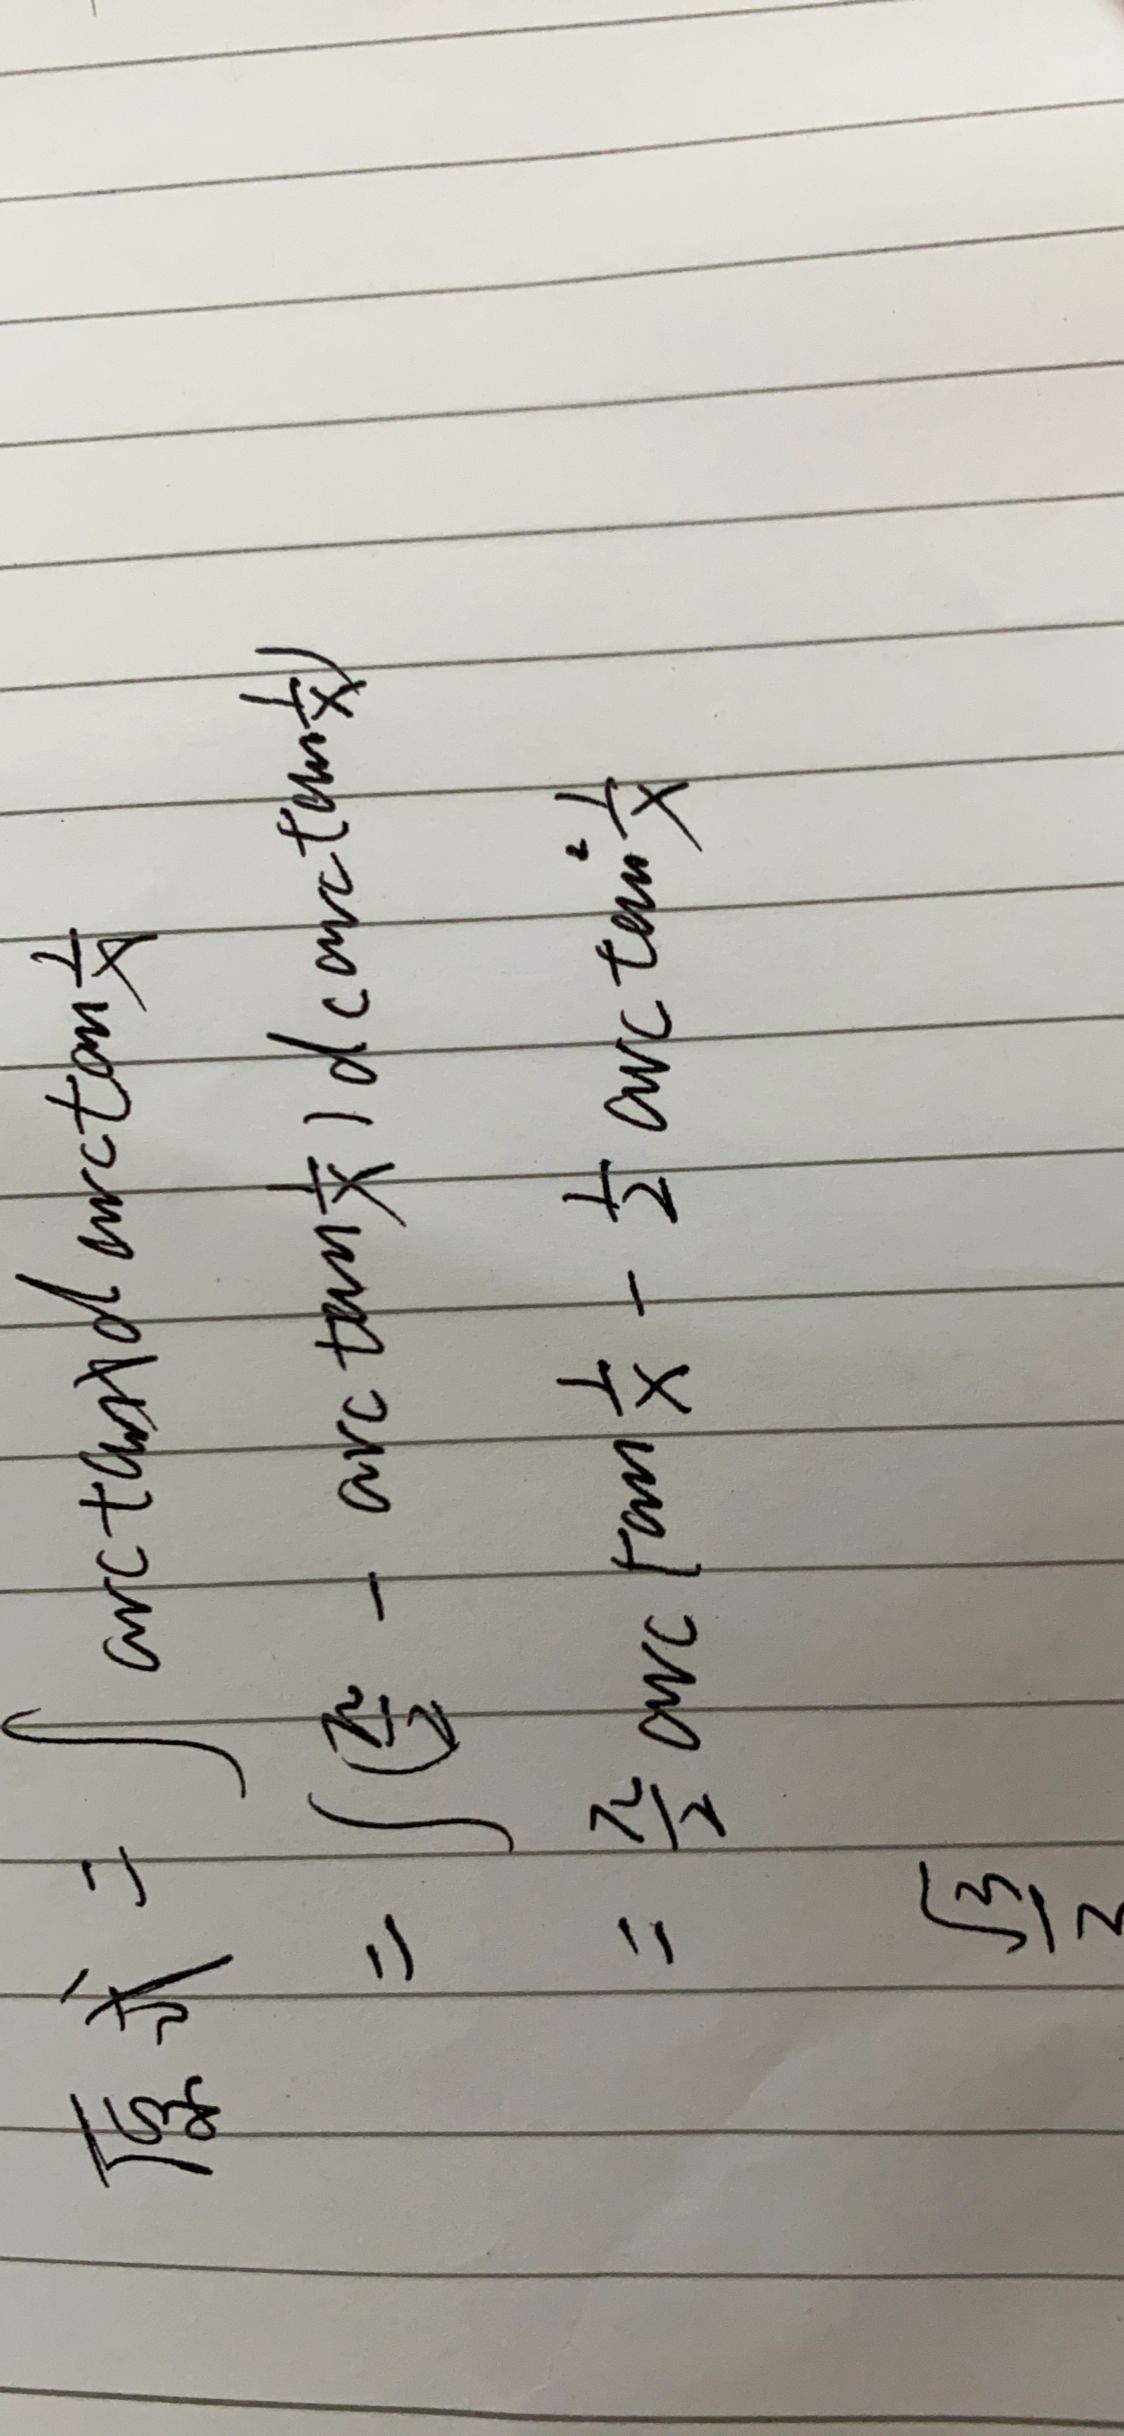 原式 = ∫ arctanx d arctan 1/x
= ∫ (π/2 - arctan 1/x) d(arctan 1/x)
= π/2 arctan 1/x - 1/2 arctan² 1/x
√3/2